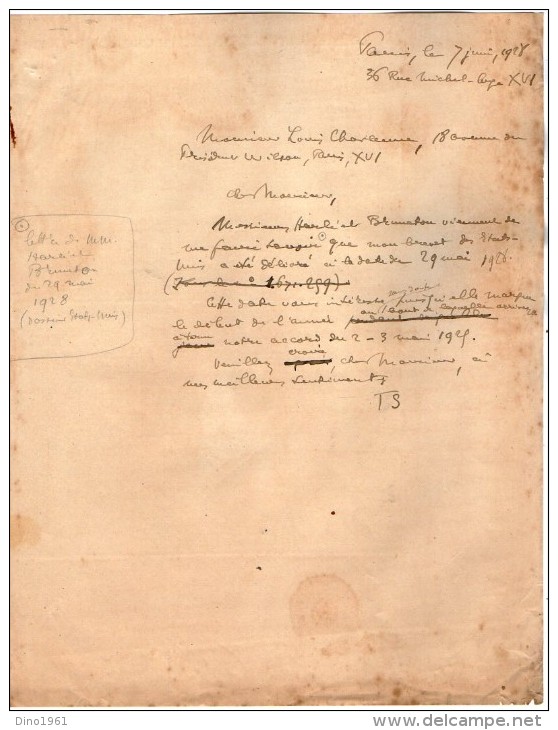 Paris, le 7 juin, 1928
36 Rue Michel-Ange XVI
Monsieur Louis 18 avenue du
Président Wilson, Paris, XVI
cher Monsieur,
Messieurs Harlé et Bruneton viennent de
me faire savoir que mon brevet des États-
Unis a été délivré à la date du 29 mai 1928.
(1.671.259)
Cette date vous intéresse puisqu'elle marque
en date
le début de l'année au bout de laquelle arrivera
à terme notre accord du 2-3 mai 1925.
Veuillez croire, cher Monsieur, à
mes meilleurs sentiments
TS
lettre de MM.
Harlé et
Bruneton
du 29 mai
1928
(dossier États-Unis)
Dino1961
www.delcampe.net